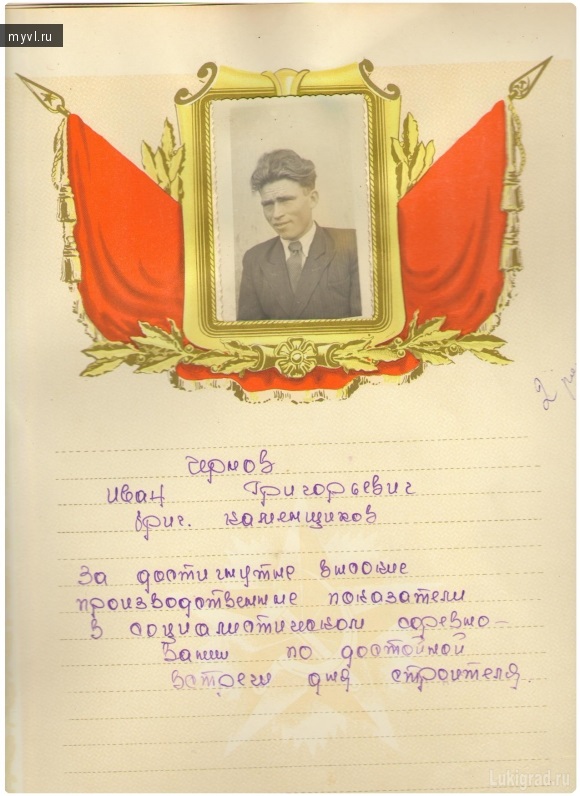 myvl.ru
Чернов
Иван Григорьевич
бриг. каменщиков
За достигнутые высокие
производственные показатели
в социалистическом соревно-
вании по достойной
встречи дня строителя.
Lukigrad.ru